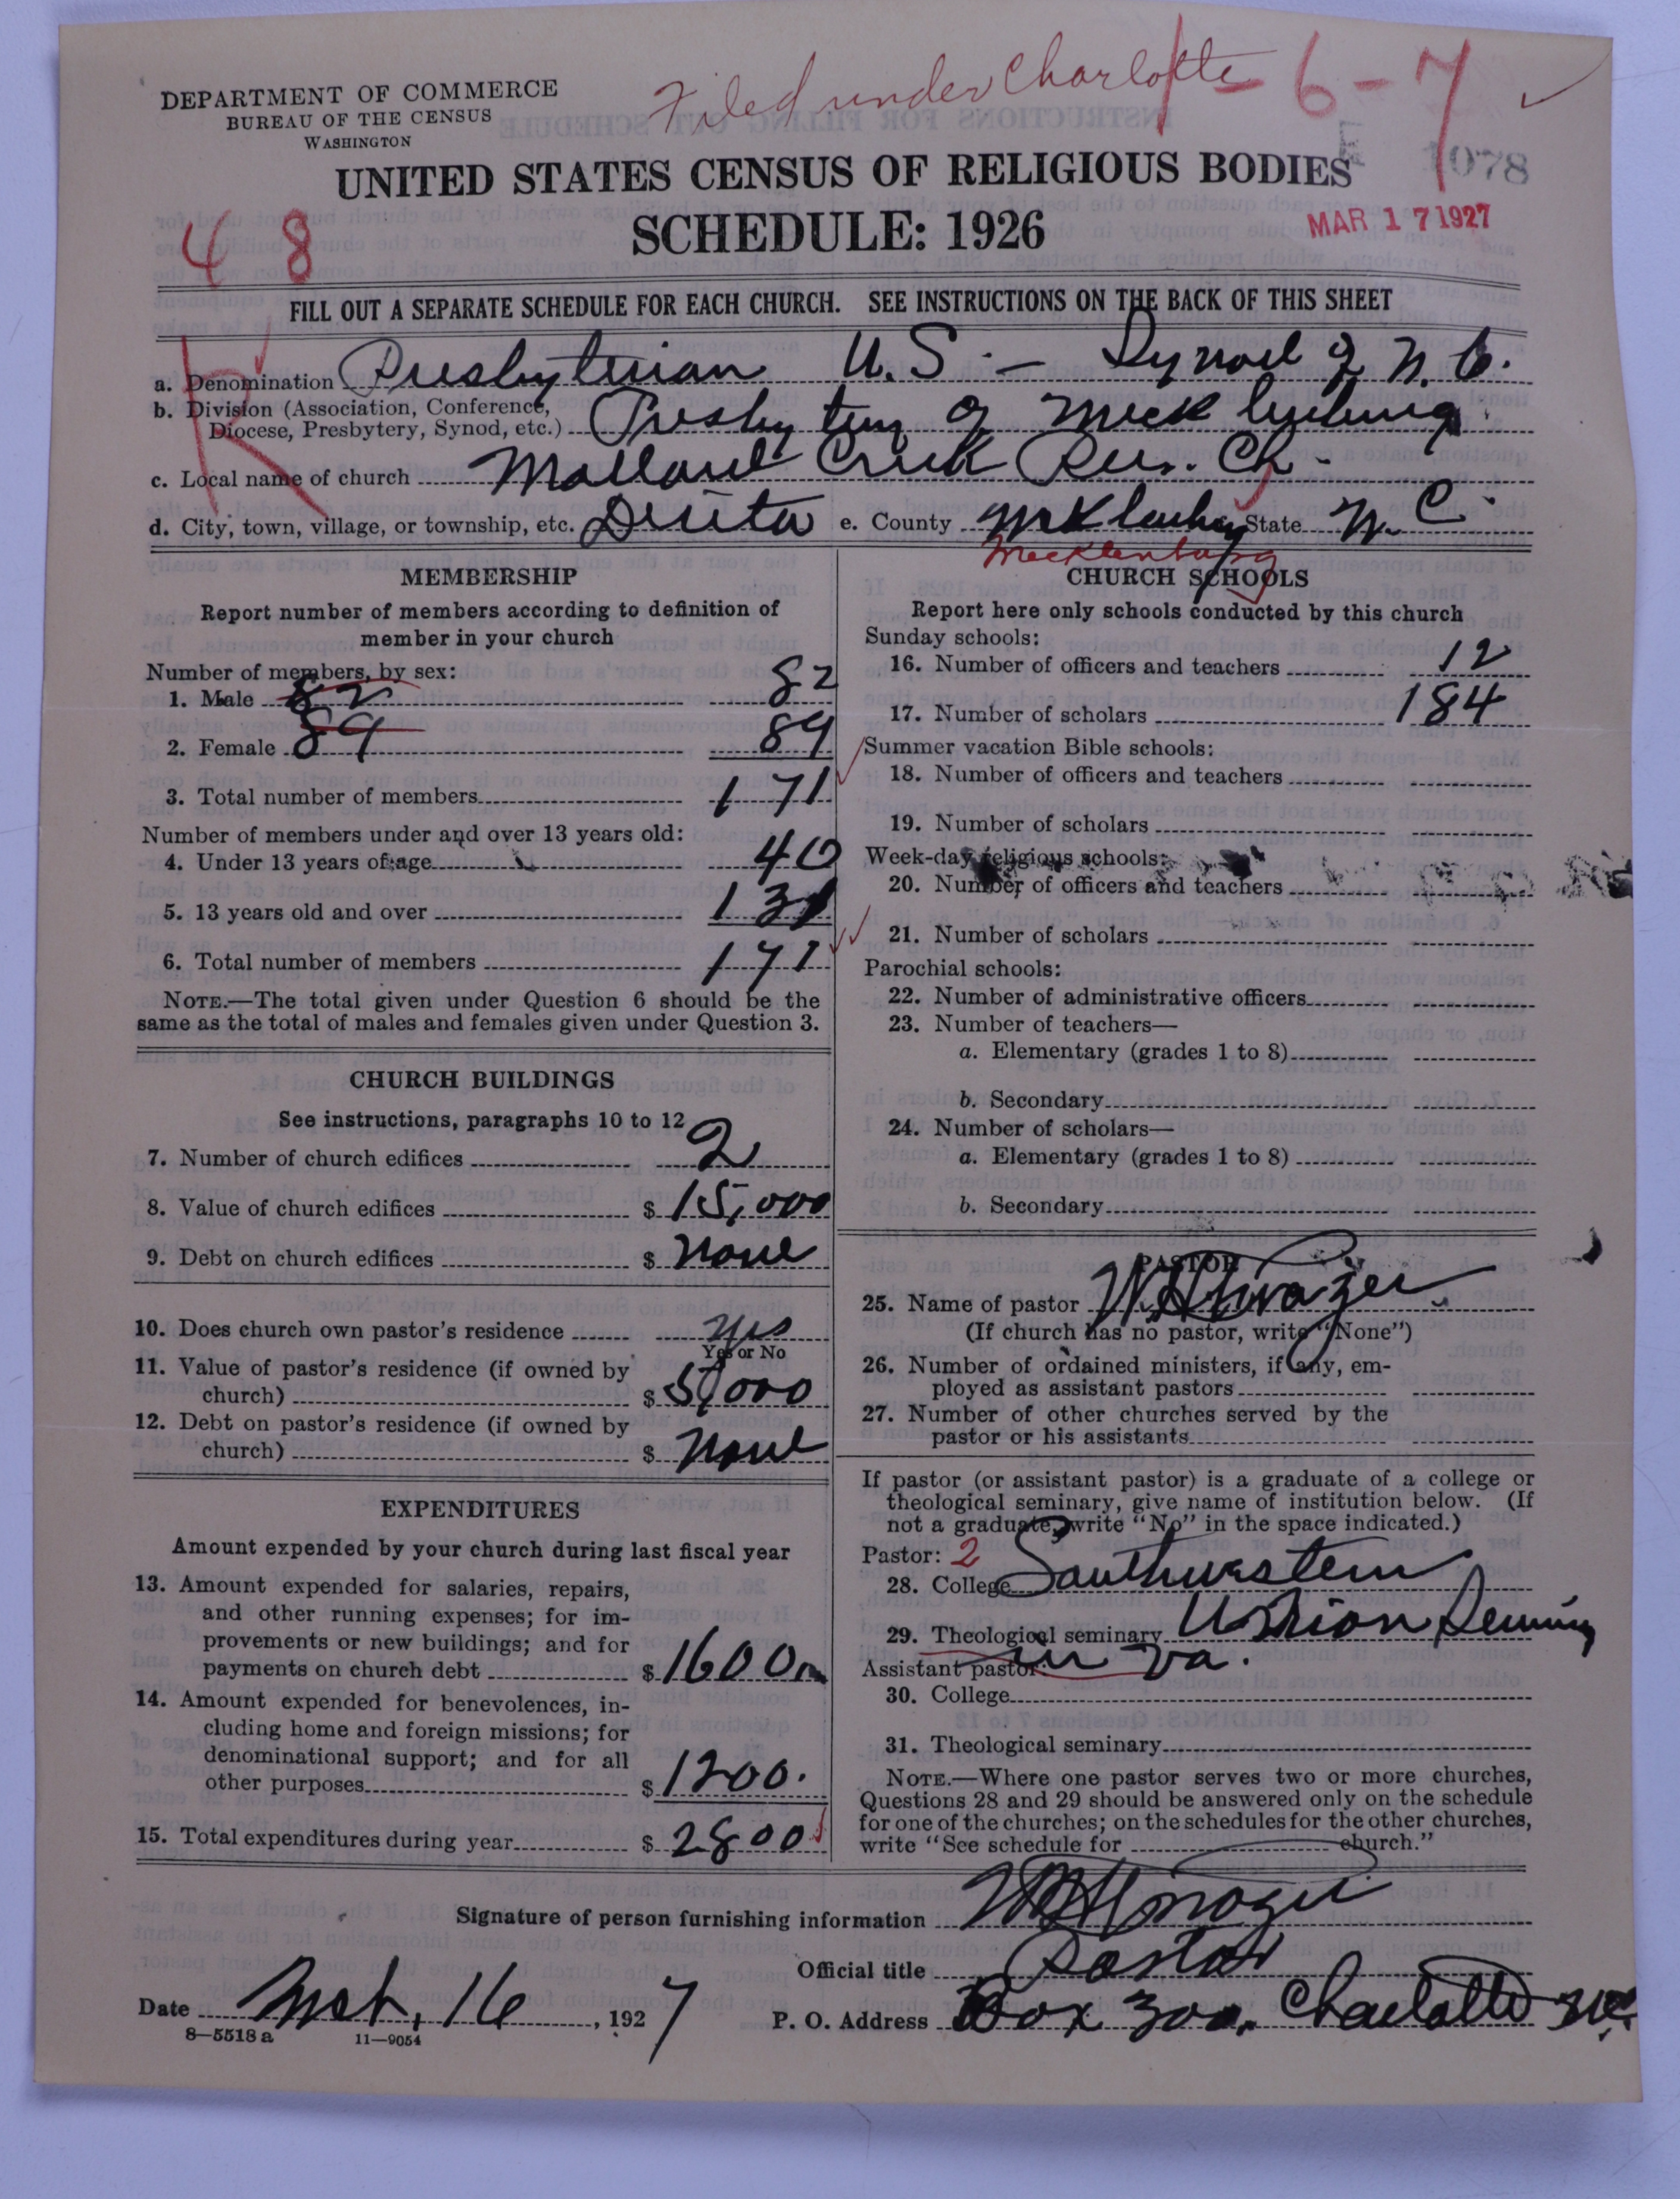 Filed under Charlotte 1-6-7
DEPARTMENT OF COMMERCE
BUREAU OF THE CENSUS
WASHINGTON
1078
UNITED STATES CENSUS OF RELIGIOUS BODIES
MAR 17 1927
48
SCHEDULE: 1926
FILL OUT A SEPARATE SCHEDULE FOR EACH CHURCH. SEE INSTRUCTIONS ON THE BACK OF THIS SHEET
R
a. Denomination Presbyterian U.S. - Synod of N.C.
b. Division (Association, Conference, Diocese, Presbytery, Synod, etc.) Presbytery of Mecklenburg
c. Local name of church Mallard Creek Pres. Ch.
d. City, town, village, or township, etc. Derita e. County Mcklenburg State N.C.
Mecklenburg
MEMBERSHIP
Report number of members according to definition of
member in your church
Number of members, by sex:
1. Male 82 82
2. Female 89 89
3. Total number of members 171
Number of members under and over 13 years old:
4. Under 13 years of age 40
5. 13 years old and over 131
6. Total number of members 171
NOTE.—The total given under Question 6 should be the
same as the total of males and females given under Question 3.
CHURCH BUILDINGS
See instructions, paragraphs 10 to 12
7. Number of church edifices 2
8. Value of church edifices $ 15,000
9. Debt on church edifices $ None
10. Does church own pastor's residence yes
Yes or No
11. Value of pastor's residence (if owned by
church) $ 5,000
12. Debt on pastor's residence (if owned by
church) $ None
EXPENDITURES
Amount expended by your church during last fiscal year
13. Amount expended for salaries, repairs,
and other running expenses; for im-
provements or new buildings; and for
payments on church debt $ 1600
14. Amount expended for benevolences, in-
cluding home and foreign missions; for
denominational support; and for all
other purposes $ 1200.
15. Total expenditures during year $ 2800
CHURCH SCHOOLS
Report here only schools conducted by this church
Sunday schools:
16. Number of officers and teachers 12
17. Number of scholars 184
Summer vacation Bible schools:
18. Number of officers and teachers
19. Number of scholars
Week-day religious schools:
20. Number of officers and teachers
21. Number of scholars
Parochial schools:
22. Number of administrative officers
23. Number of teachers—
a. Elementary (grades 1 to 8)
b. Secondary
24. Number of scholars—
a. Elementary (grades 1 to 8)
b. Secondary
PASTOR
25. Name of pastor
(If church has no pastor, write "None")
26. Number of ordained ministers, if any, em-
ployed as assistant pastors
27. Number of other churches served by the
pastor or his assistants
If pastor (or assistant pastor) is a graduate of a college or
theological seminary, give name of institution below. (If
not a graduate, write "No" in the space indicated.)
Pastor: 2
28. College Southwestern
29. Theological seminary Union Seminary
in Va.
Assistant pastor:
30. College
31. Theological seminary
NOTE.—Where one pastor serves two or more churches,
Questions 28 and 29 should be answered only on the schedule
for one of the churches; on the schedules for the other churches,
write "See schedule for church."
Signature of person furnishing information
Official title Pastor
Date Mch, 16, 1927 P. O. Address Box 300, Charlotte NC.
8—5518 a 11—9054